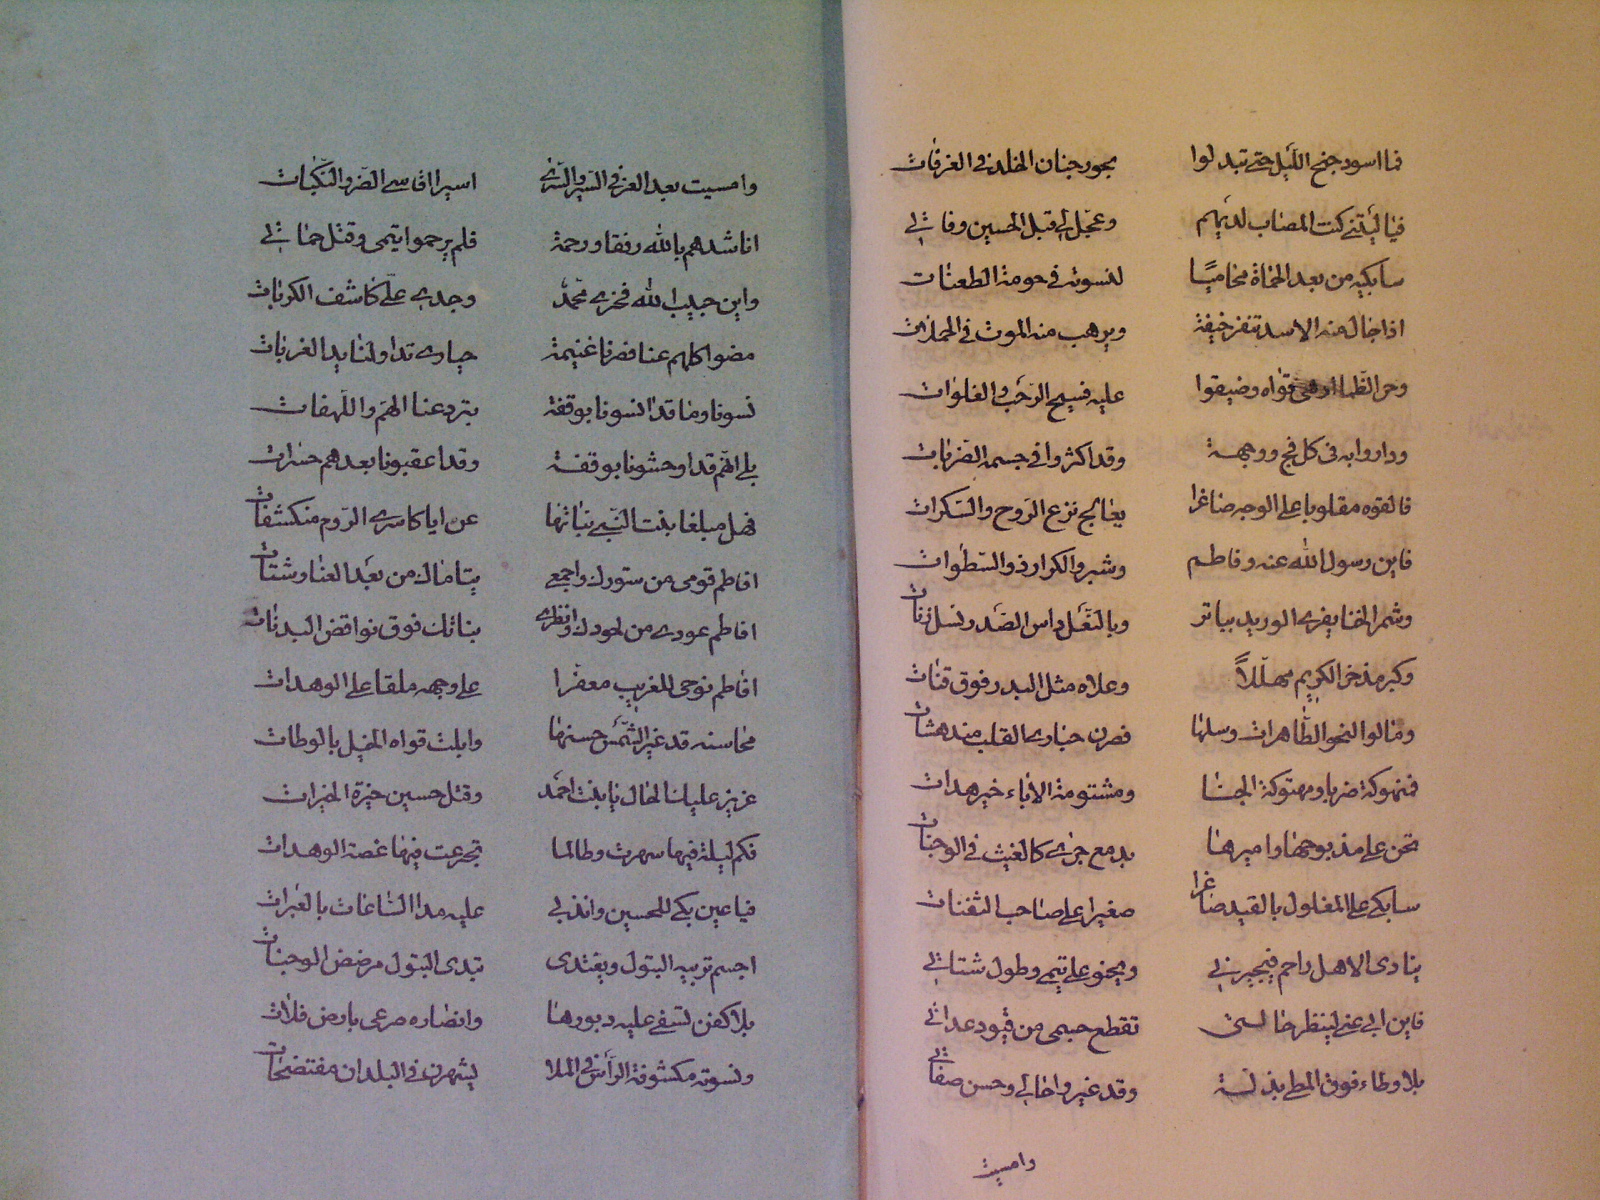 فما اسود جنح الليل حتى تبدلوا بحور جنان الخلد في الغرفات
فيا ليتني كنت المصاب لديهم وعجل لي قبل الحسين وفاتي
سابكيه من بعد الحماة محاميًا لنسوته في حومة الطعنات
اذا جال منه الاسد تنفر خيفة ويرهب منه الموت في الحملات
وحر الظما اوهى قواه وضيقوا عليه فسيح الرحب والفلوات
وداروا به في كل فج ووجهة وقد اكثروا في جسمه الضربات
فالقوه مقلوبا على الوجه صاغرا يعالج نزع الروح والسكرات
فاين رسول الله عنه وفاطم وشبر والكرار ذو السطوات
وشمر الخنا يفري الوريد بباتر وبالنعل داس الصدر نسل زنات
وكبر مذ خر الكريم مهللاً وعلاه مثل البدر فوق قنات
ومالوا لنحو الطاهرات وسلبها فصرن حيارى القلب مندهشات
فمنهوكة ضربا ومهتوكة الخبا ومشتومة الاباء خير هدات
تحن على مذبوحها واميرها بدمع جرى كالغيث في الوجنات
سابكي على المغلول بالقيد صاغرا صغيرا على صاحب الثفنات
ينادي الاهل راحم فيجيرني ويحنو على يتمي وطول شتاتي
فاين ابي عني لينظر حالتي تقطع جسمي من قيود عداتي
بلا وطاء فوق المطي بذلة وقد غيروا حالي وحسن صفاتي
وامسيت
وامسيت بعد العز في السير والسرى اسيرا اقاسي الضر والنكبات
اناشدهم بالله رفقا ورحمة فلم يرحموا يتمي وقتل حماتي
واين حبيب الله فخري محمد وجدي علي كاشف الكربات
مضوا كلهم عنا فصرنا غنيمة حيارى تداولنا يد الغربات
نسونا وما قد انسونا بوقفة بترد عنا الهم واللهفات
بلى انهم قد اوحشونا بوقفة وقد اعقبونا بعدهم حسرات
فهل مبلغا بنت النبي بناتها عن ايا كاسرى الروم منكشفات
افاطم قومي من ستورك واجمعي يتاماك من بعد العنا وشتات
افاطم عودي من لحودك وانظري بناتك فوق نواقض البدنات
افاطم نوحي للغريب معفرا على وجهه ملقا على الوهدات
محاسنه قد غير الشمس حسنها وابلت قواه الخيل بالوطات
عزيز عليك الحال يا بنت احمد وقتل حسين خيرة الخيرات
فكم ليلة فيها سهرت وطالما تجرعت فيها غصة الوهدات
فيا عين بكي للحسين واندبي عليه مدا الساعات بالعبرات
اجسم تربيه البتول ويغتدى تبدى البتول مرضض الوجنات
بلا كفن تسفي عليه دبورها وانصاره صرعى بارض فلات
ونسوته مكشوفة الرأس في الملا يشهرن في البلدان مفتضحات